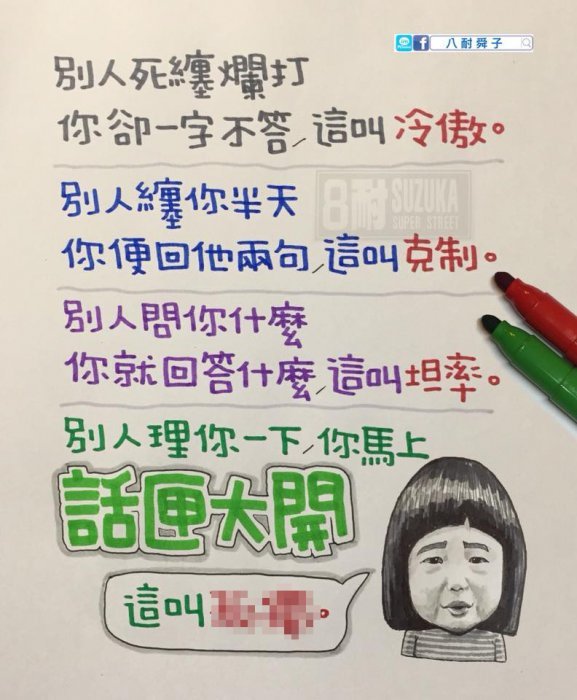 八耐舜子
別人死纏爛打
你卻一字不答,這叫冷傲。
8耐 SUZUKA
SUPER STREET
別人纏你半天
你便回他兩句,這叫克制。
別人問你什麼
你就回答什麼,這叫坦率。
別人理你一下,你馬上
話匣大開
這叫 。